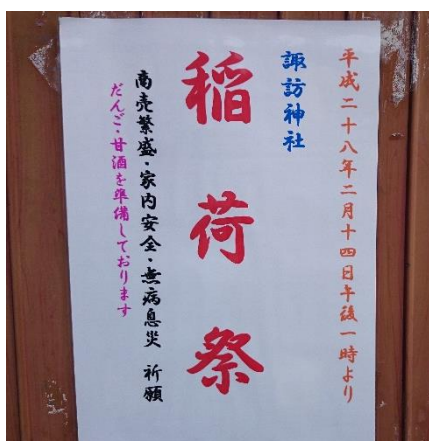 平成二十八年二月十四日午後一時より
諏訪神社
稲荷祭
商売繁盛・家内安全・無病息災 祈願
だんご・甘酒を準備しております